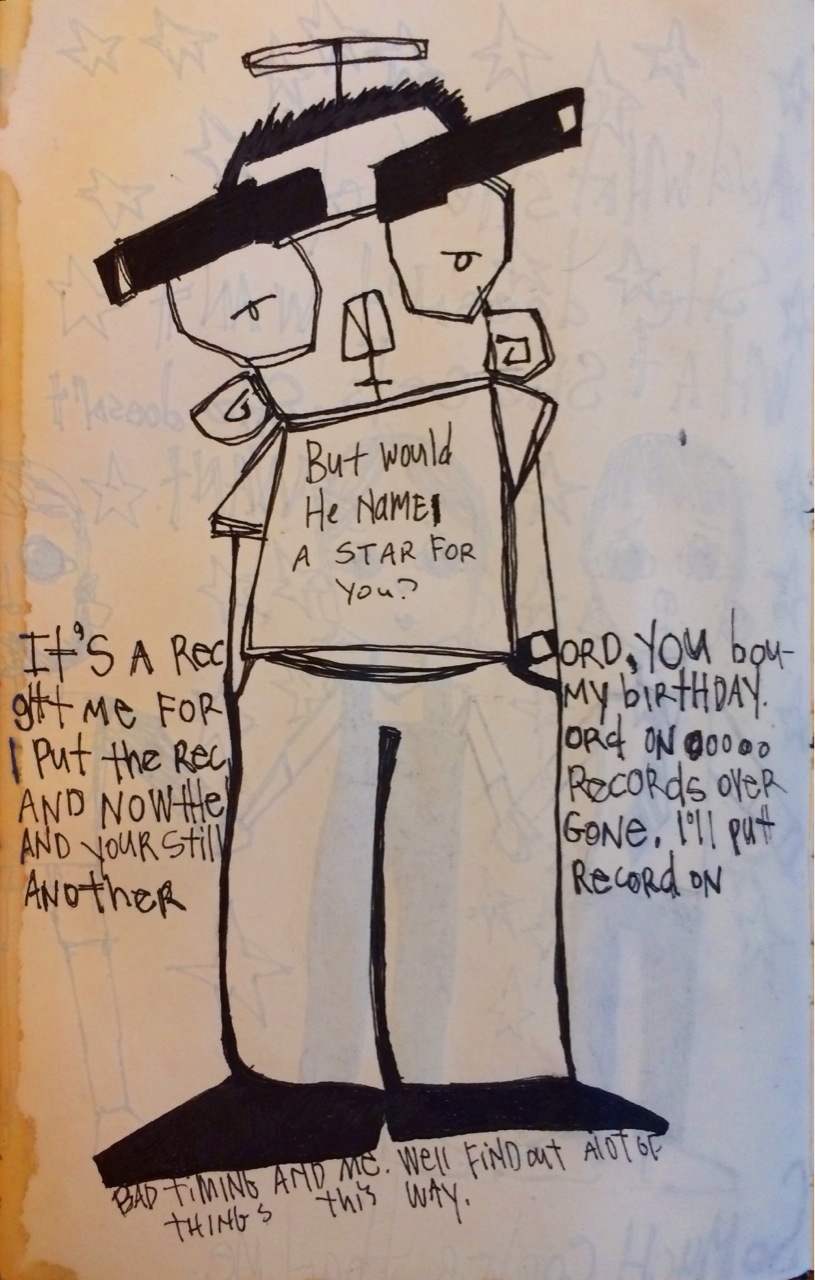 But would
He NAME
A STAR FOR
You?
It's A Rec ORD, You bou-
ght me FOR MY biRTHDAY.
I Put the Rec ord ON
AND NOW the Records over
AND YOUR Still GONE. I'll put
ANother Record ON
BAD TiMiNG AND Me. Well FiND out Alot OF
THiNGs this WAY.